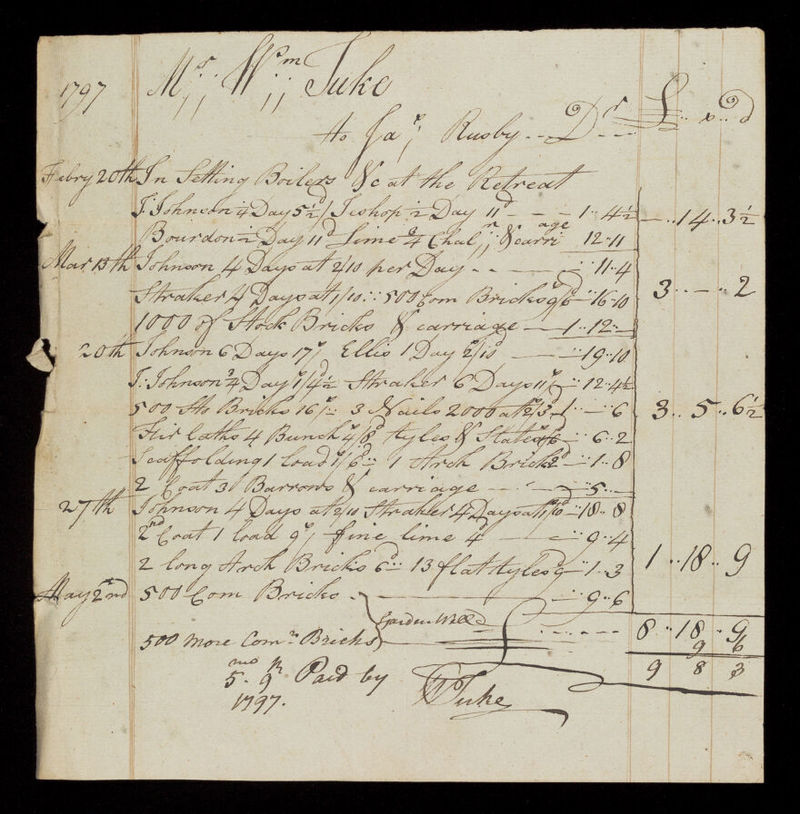 1797 Mr. Wm. Tuke
to Jas. Rusby -- Dr -- £ .. s .. D
Febry 20th In Setting Boilers &c at the Retreat
J. Johnson ¼ Day 5½d Jeshop ½ Day 11d - - - 1 - 4½ — .. 14 .. 3½
Bourdon ½ Day 11d Lime 4 Chal &carriage 12 - 11
Mar 13th Johnson 4 Days at 2/10 per Day - - — .. 11 - 4
Straker 4 Days at 1/10 .. 500 Com Bricks 9/6 — 16 - 10 3 .. — .. 2
1000 of Stock Bricks & carriage — 1 .. 12 —
20th Johnson 6 Days 17s Ellis 1 Day 2/10 — 19 - 10
J. Johnson 4 Days 1/4½ Straker 6 Days 11s — 12 - 4½
500 Sto Bricks 16s .. 3 Nails 2000 at 2/3 - 1 - — - 6 3 .. 5 .. 6½
Fir laths 4 Bunch 4/8 tyles & Slates 1/6 — 6 - 2
Scaffolding 1 load 1/6 .. 1 Arch Brick 2d — 1 - 8
2 Coat 3 Barrows & carriage — - 5 —
27th Johnson 4 Days at 2/10 Straker 4 Days at 1/10 - 18 - 8
2nd Coat 1 load 9s, fine lime 4d — .. 9 - 4
2 long Arch Bricks 6d .. 13 flat tyles 9 — 1 - 3 1 .. 18 .. 9
May 2nd 500 Com Bricks — - 9 - 6
Garden Wall £ - - - - 8 .. 18 .. 9
500 more Comn Bricks 9 6
5 mo 9th Paid by WTuke 9 8 3
1797.